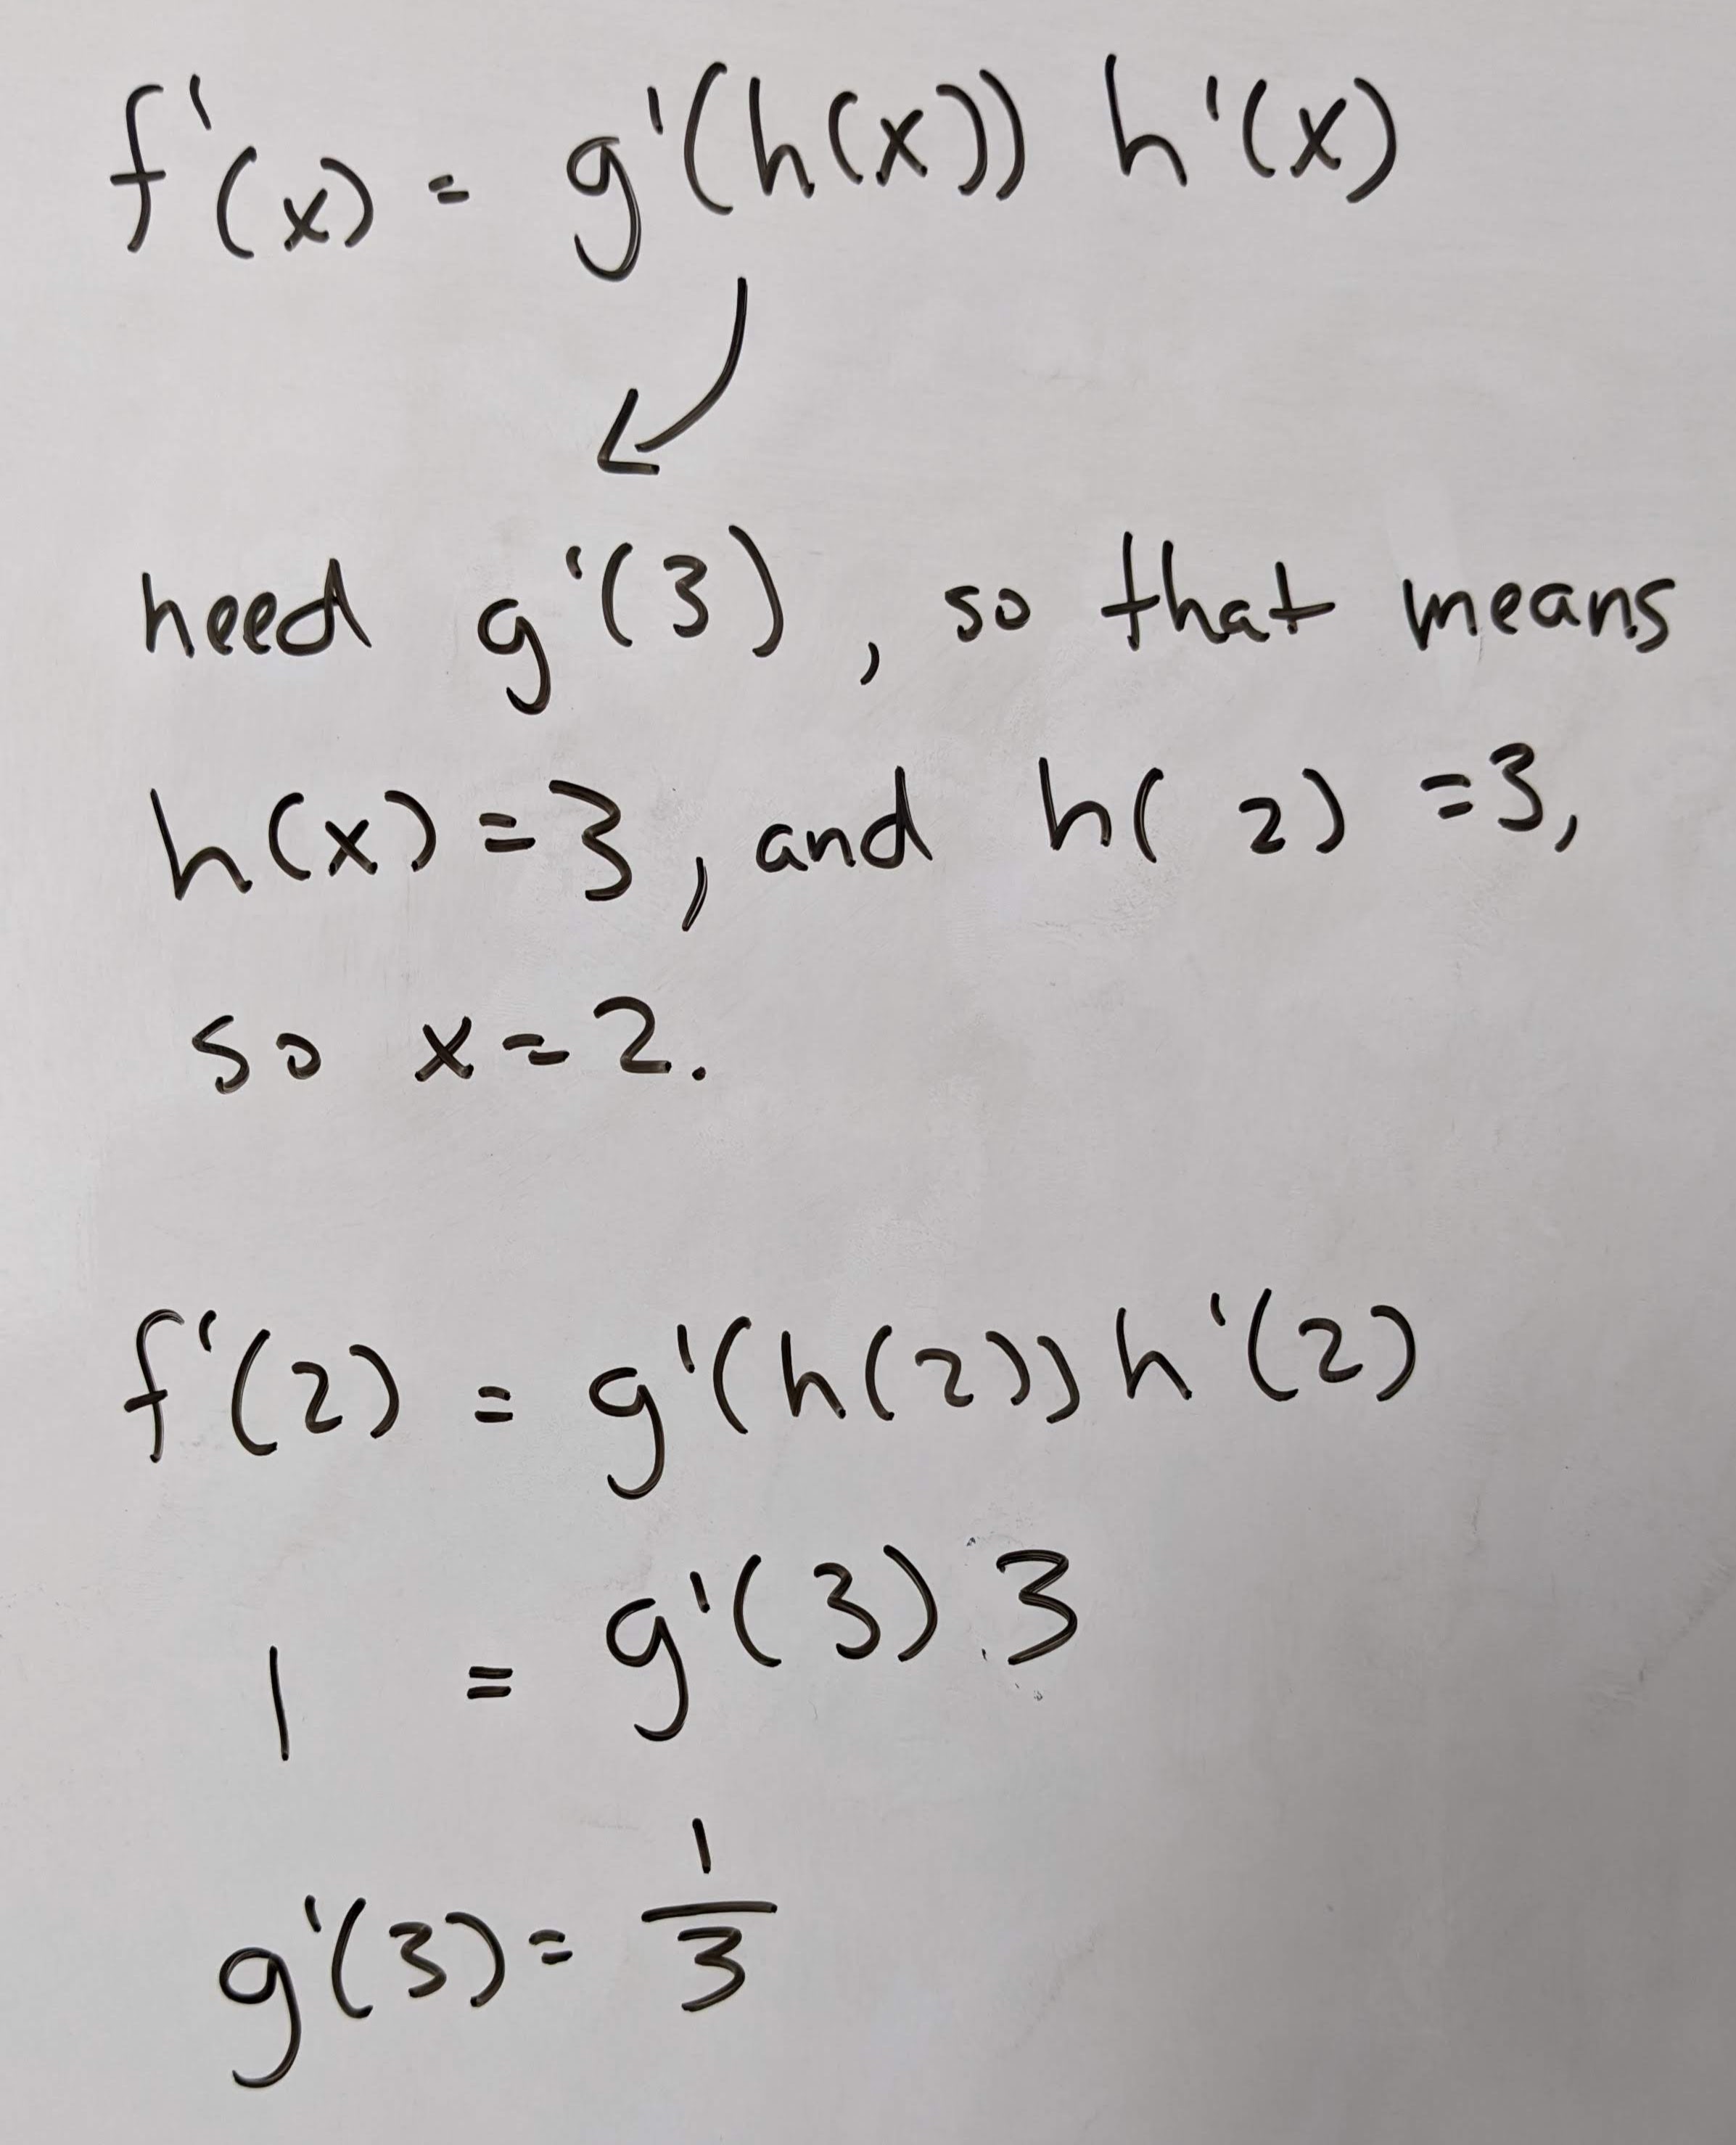 f'(x) = g'(h(x)) h'(x)
need g'(3), so that means
h(x) = 3, and h(2) = 3,
so x = 2.
f'(2) = g'(h(2)) h'(2)
1 = g'(3) 3
g'(3) = 1/3